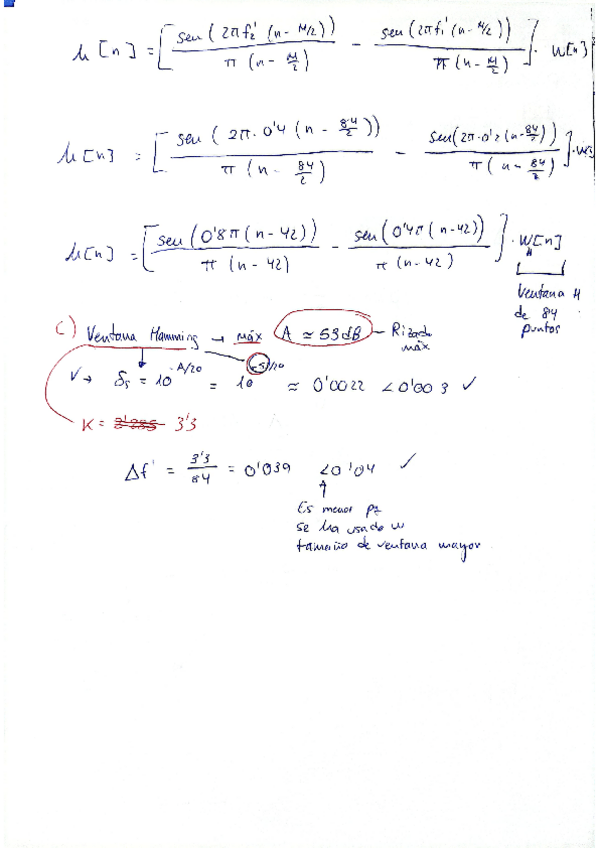 h[n] = [ sen(2πf2'(n-M/2)) / π(n-M/2) - sen(2πf1'(n-M/2)) / π(n-M/2) ] · W[n]
h[n] = [ sen(2π·0'4(n-84/2)) / π(n-84/2) - sen(2π·0'2(n-84/2)) / π(n-84/2) ] ·
h[n] = [ sen(0'8π(n-42)) / π(n-42) - sen(0'4π(n-42)) / π(n-42) ] · W[n]
Ventana H
de 84
puntos
C) Ventana Hamming → máx A ≃ 53dB - Rizado
máx
δs = 10^-A/20 = 10^-53/20 ≈ 0'0022 <0'003 ✓
K = 3'285 3'3
Δf' = 3'3/84 = 0'039 <0'04 ✓
Es menor pq
se ha usado un
tamaño de ventana mayor.